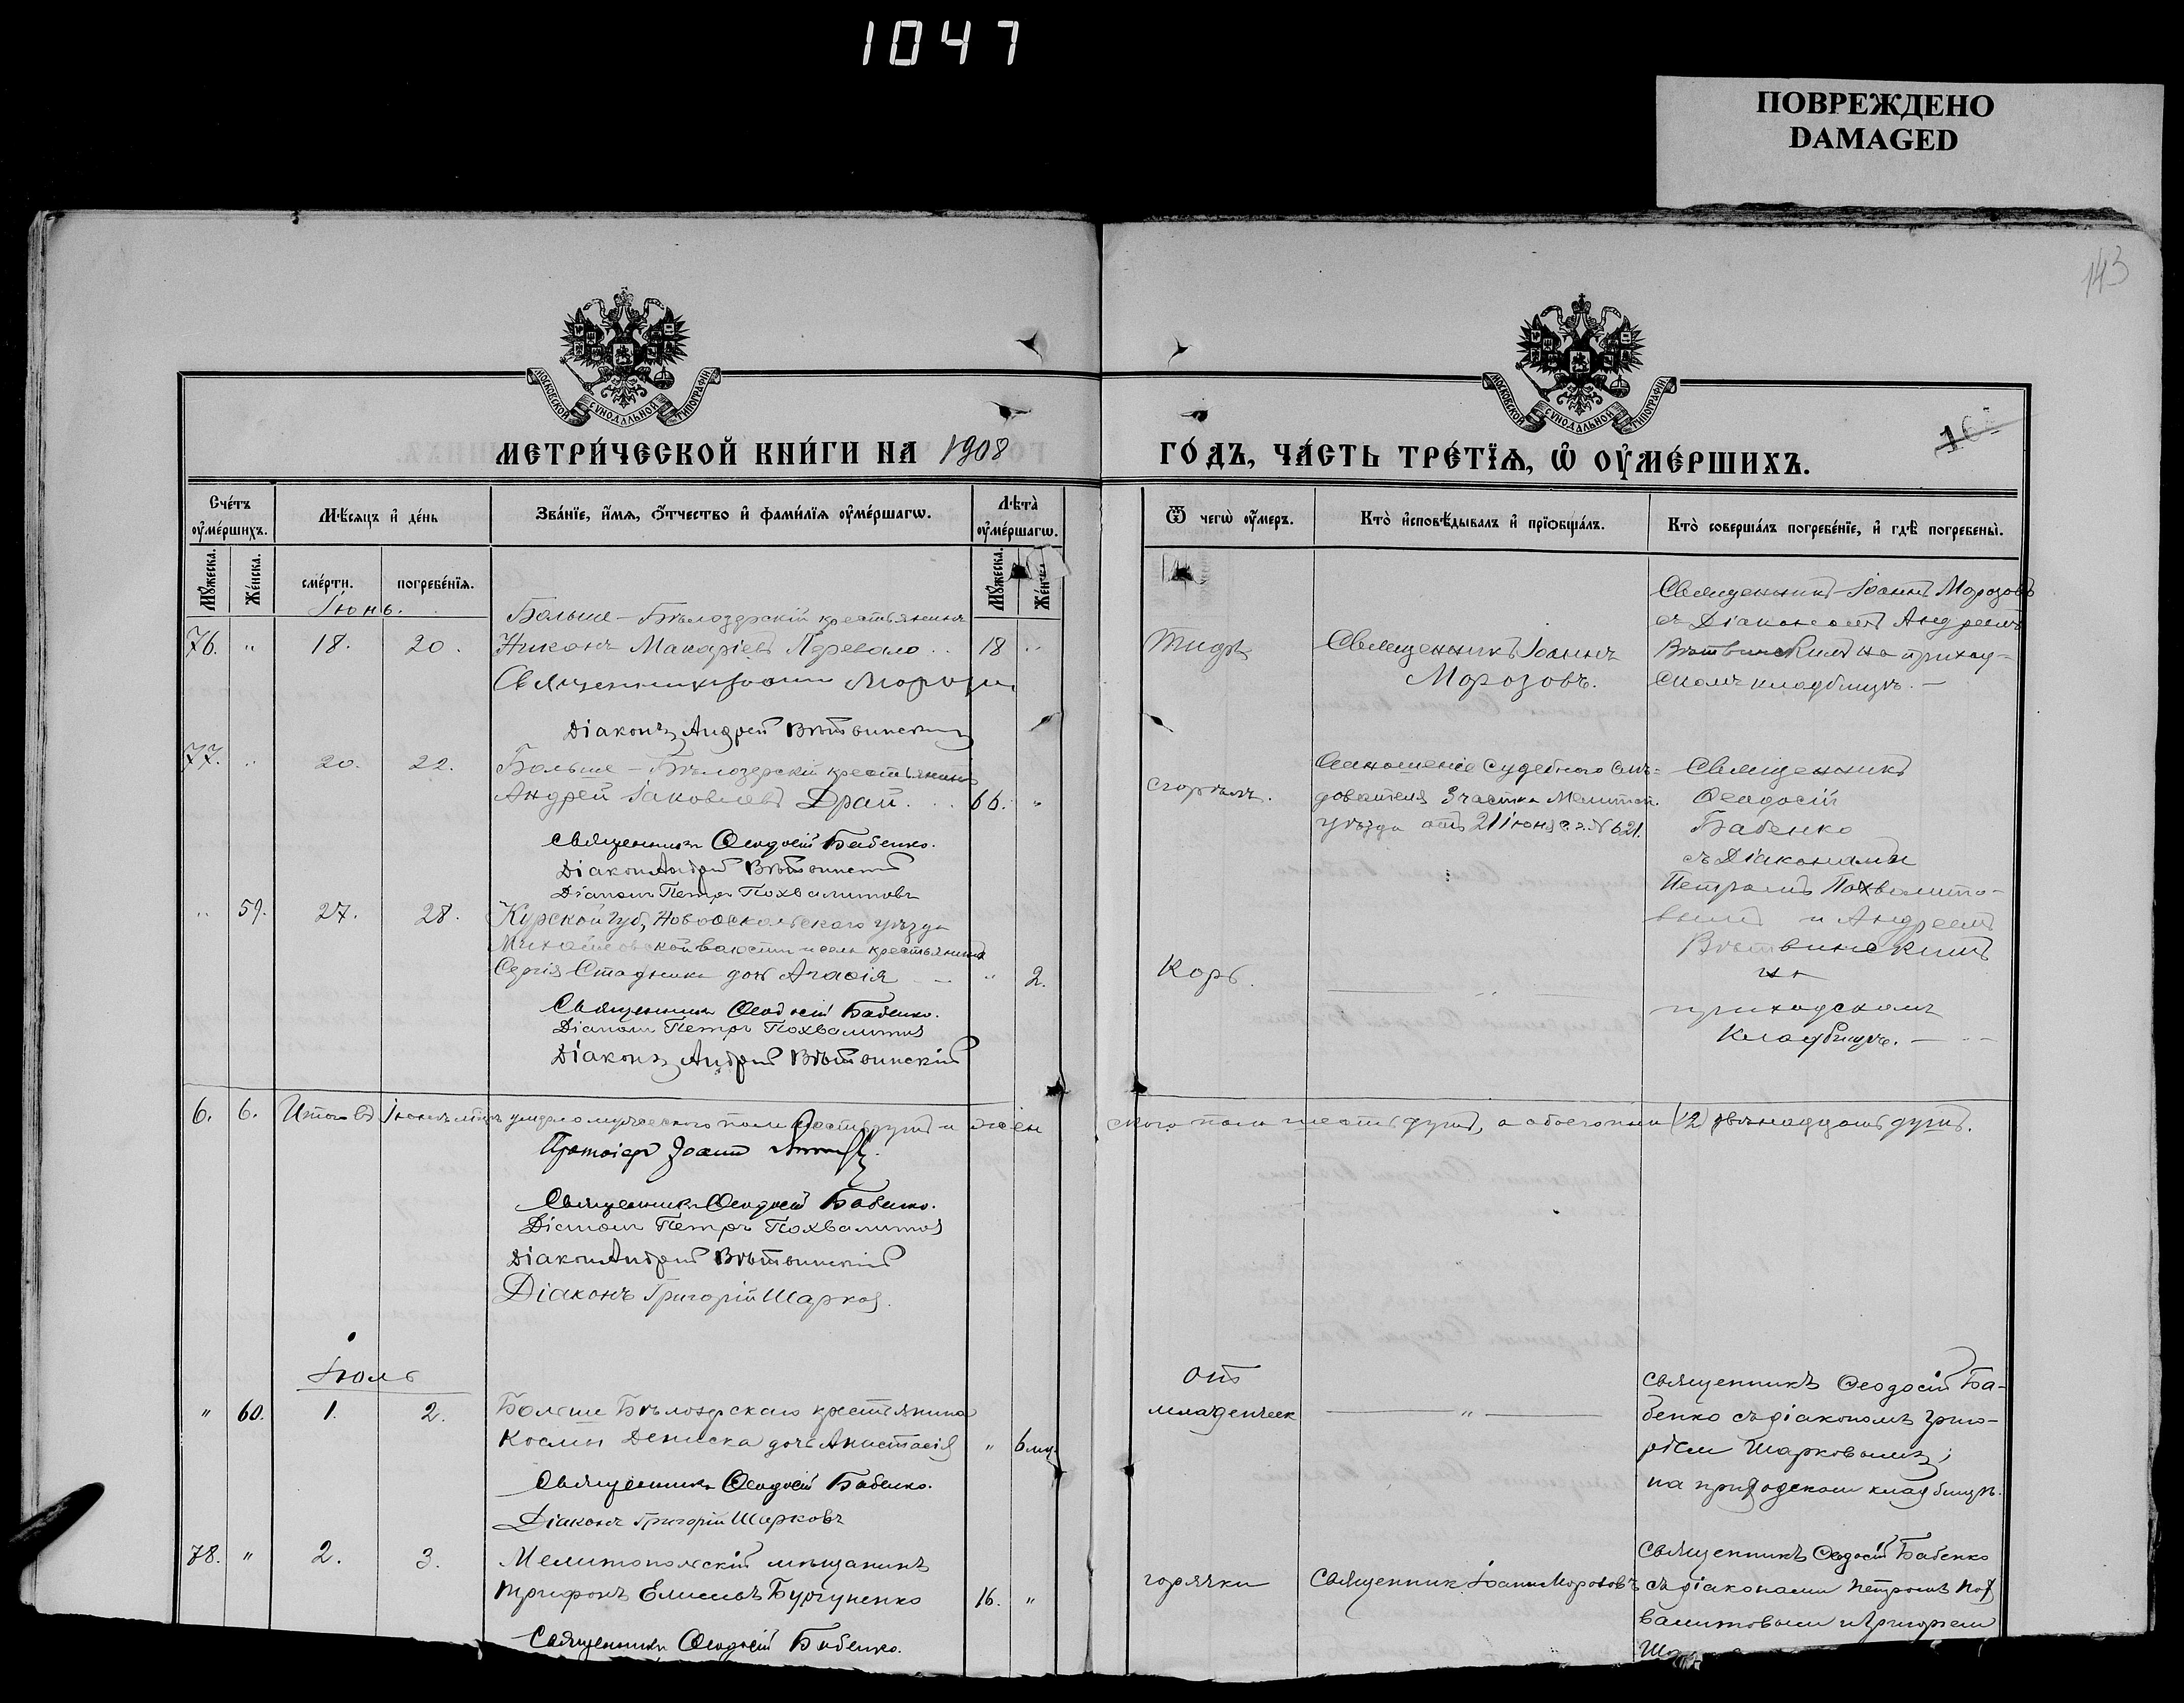 1047
ПОВРЕЖДЕНО
DAMAGED
143
МОСКОВСКОЙ СУНОДАЛЬНОЙ ТИПОГРАФІИ
МОСКОВСКОЙ СУНОДАЛЬНОЙ ТИПОГРАФІИ
МЕТРИ́ЧЕСКОЙ КНИ́ГИ НА 1908
ГО́ДЪ, ЧА́СТЬ ТРЕ́ТЇѦ, Ѽ ОУ҆МЕ́РШИХЪ.
Сче́тъ оу҆ме́ршихъ.
Мѣ́сяцъ и҆ де́нь
Зва́нїе, и҆́мѧ, ѻ҆́тчество и҆ фами́лїѧ оу҆ме́ршагѡ.
Лѣ́та оу҆ме́ршагѡ.
Ѿ чегѡ̀ оу҆́меръ.
Кто̀ и҆сповѣ́дывалъ и҆ прїѻбща́лъ.
Кто̀ соверша́лъ погребе́нїе, и҆ гдѣ̀ погребены̀.
Мꙋ́жеска.
Же́нска.
сме́рти.
погребе́нїѧ.
Мꙋ́жеска.
Же́нска
Іюнь.
Больше-Бѣлозерскій крестьянинъ
76. " 18. 20. Никонъ Макаріевъ Перевало .. 18 "
Священникъ Іоаннъ Морозовъ
Діаконъ Андрей Вѣтвинскій
Тифъ
Священникъ Іоаннъ
Морозовъ.
Священникъ Іоаннъ Морозовъ
съ Діакономъ Андреемъ
Вѣтвинскимъ на приход-
скомъ кладбищѣ. —
77. " 20. 22. Больше-Бѣлозерскій крестьянинъ
Андрей Іаковлевъ Драй. .. 66. "
Священникъ Ѳеодосій Бабенко.
Діаконъ Андрей Вѣтвинскій
Діаконъ Петръ Похвалитовъ
сгорѣлъ.
Отношеніе Судебного Слѣ-
дователя 3 участка Мелитоп.
уѣзда отъ 21 іюня с. г. № 621.
Священникъ
Ѳеодосій
Бабенко
съ Діаконами
Петромъ Похвалито-
вымъ и Андреемъ
Вѣтвинскимъ
на
приходскомъ
Кладбищѣ. —
" 59. 27. 28. Курской губ., Новооскольскаго уѣзда
Михайловской волости и села крестьянина
Сергія Стадника дочь Агафія " 2.
Священникъ Ѳеодосій Бабенко.
Діаконъ Петръ Похвалитовъ
Діаконъ Андрей Вѣтвинскій
Корь.
— " —
6. 6. Итого въ Іюнѣ м-цѣ умерло мужескаго пола шесть душъ и жен
скаго пола шесть душъ, а обоего пола (12) двѣнадцать душъ.
Протоіерей Іоаннъ
Священникъ Ѳеодосій Бабенко.
Діаконъ Петръ Похвалитовъ
Діаконъ Андрей Вѣтвинскій
Діаконъ Григорій Шарковъ.
Іюль
" 60. 1. 2. Больше Бѣлозерскаго крестьянина
Космы Дениска дочь Анастасія " 6 мц.
Священникъ Ѳеодосій Бабенко.
Діаконъ Григорій Шарковъ
отъ
младенческ
— " —
Священникъ Ѳеодосій Ба-
бенко съ діакономъ Григо-
ріем Шарковымъ,
на приходском кладбищѣ.
78. " 2. 3. Мелитопольскій мѣщанинъ
Трифонъ Елисѣевъ 16. "
Священникъ Ѳеодосій Бабенко.
горячки
Священник Іоаннъ Морозовъ
Священникъ Ѳеодосій Бабенко
съ діаконами Петромъ Пох
валитовым и Григоріем
Шар